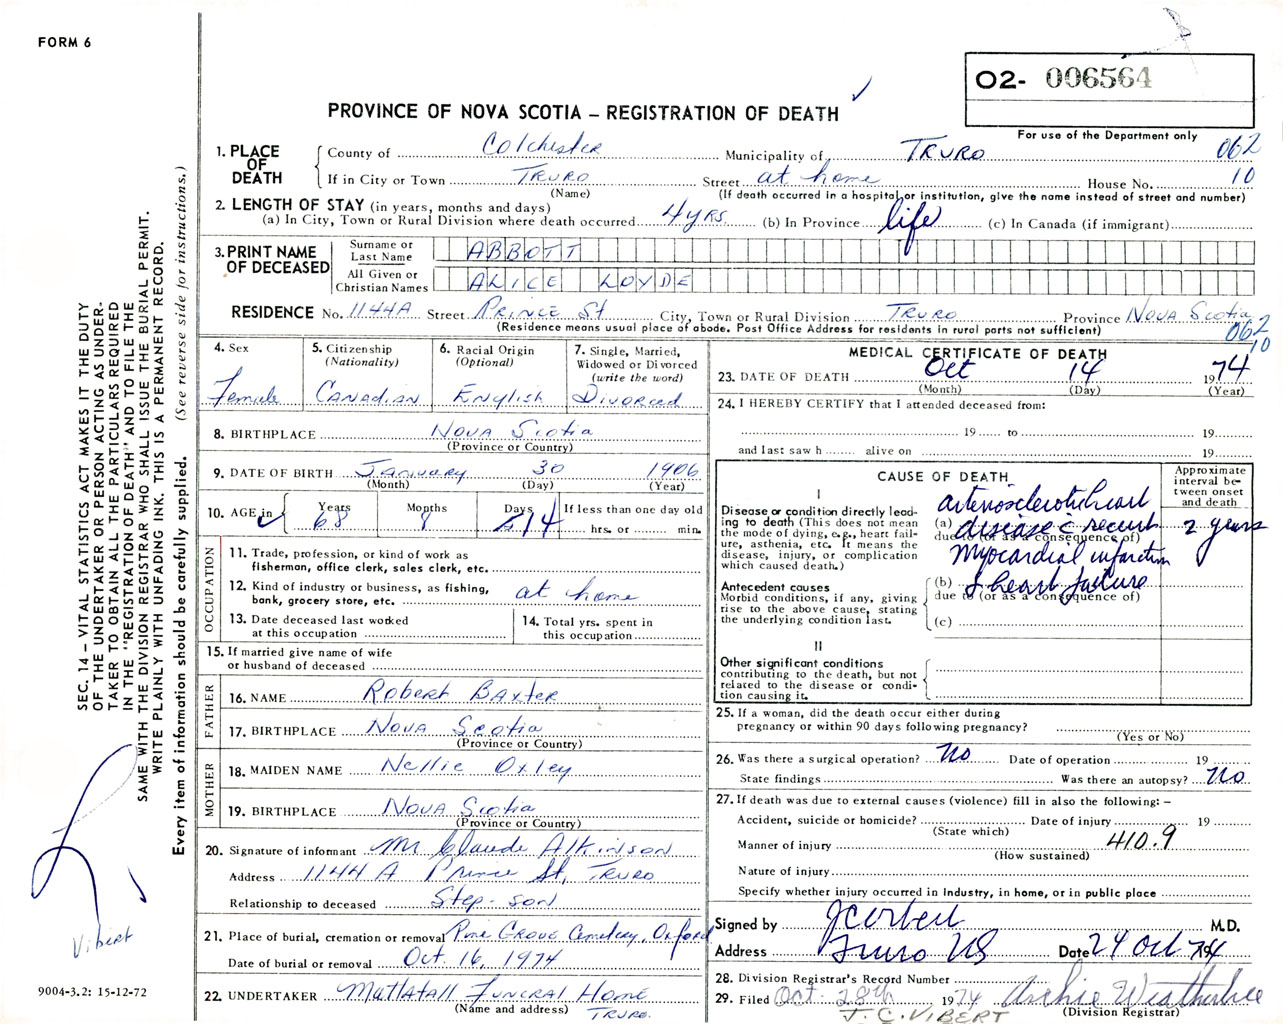 FORM 6
02- 006564
For use of the Department only
PROVINCE OF NOVA SCOTIA – REGISTRATION OF DEATH
062
10
1. PLACE OF DEATH
County of Colchester Municipality of TRURO
If in City or Town TRURO Street at home House No.
(Name) (If death occurred in a hospital or institution, give the name instead of street and number)
2. LENGTH OF STAY (in years, months and days)
(a) In City, Town or Rural Division where death occurred 4 yrs. (b) In Province life (c) In Canada (if immigrant)
3. PRINT NAME OF DECEASED
Surname or Last Name ABBOTT
All Given or Christian Names ALICE LOYDE
RESIDENCE No. 1144A Street PRINCE St City, Town or Rural Division TRURO Province NOVA Scotia
(Residence means usual place of abode. Post Office Address for residents in rural parts not sufficient)
062
10
4. Sex Female
5. Citizenship (Nationality) CANADIAN
6. Racial Origin (Optional) English
7. Single, Married, Widowed or Divorced (write the word) Divorced
8. BIRTHPLACE NOVA Scotia
(Province or Country)
9. DATE OF BIRTH January 30 1906
(Month) (Day) (Year)
10. AGE in Years 68 Months 8 Days 14 If less than one day old hrs. or min.
OCCUPATION
11. Trade, profession, or kind of work as fisherman, office clerk, sales clerk, etc.
12. Kind of industry or business, as fishing, bank, grocery store, etc. at home
13. Date deceased last worked at this occupation
14. Total yrs. spent in this occupation
15. If married give name of wife or husband of deceased
FATHER
16. NAME Robert Baxter
17. BIRTHPLACE NOVA Scotia
(Province or Country)
MOTHER
18. MAIDEN NAME Nellie Oxley
19. BIRTHPLACE NOVA Scotia
(Province or Country)
20. Signature of informant Mr Claude Atkinson
Address 1144 A Prince St, TRURO
Relationship to deceased Step-son
21. Place of burial, cremation or removal Pine GROVE Cemetery, Oxford
Date of burial or removal Oct. 16, 1974
22. UNDERTAKER Mattatall Funeral Home
(Name and address) TRURO.
MEDICAL CERTIFICATE OF DEATH
23. DATE OF DEATH Oct 14 1974
(Month) (Day) (Year)
24. I HEREBY CERTIFY that I attended deceased from:
19 to 19
and last saw h alive on 19
CAUSE OF DEATH
Approximate interval between onset and death
I
Disease or condition directly leading to death (This does not mean the mode of dying, e.g., heart failure, asthenia, etc. It means the disease, injury, or complication which caused death.)
arteriosclerotic heart
(a) disease c̄ recent 2 years
due to (or as a consequence of)
myocardial infarction
Antecedent causes
Morbid conditions, if any, giving rise to the above cause, stating the underlying condition last.
(b) & heart failure
due to (or as a consequence of)
(c)
II
Other significant conditions contributing to the death, but not related to the disease or condition causing it.
25. If a woman, did the death occur either during pregnancy or within 90 days following pregnancy?
(Yes or No)
26. Was there a surgical operation? No Date of operation 19
State findings Was there an autopsy? No
27. If death was due to external causes (violence) fill in also the following: –
Accident, suicide or homicide? Date of injury 19
(State which)
Manner of injury 410.9
(How sustained)
Nature of injury
Specify whether injury occurred in industry, in home, or in public place
Signed by J C Corbett M.D.
Address Truro NS Date 24 Oct 1974
28. Division Registrar's Record Number
29. Filed Oct. 28th 1974 Archie Weatherbee
J. C. VIBERT (Division Registrar)
SEC. 14 – VITAL STATISTICS ACT MAKES IT THE DUTY
OF THE UNDERTAKER OR PERSON ACTING AS UNDER-
TAKER TO OBTAIN ALL THE PARTICULARS REQUIRED
IN THE "REGISTRATION OF DEATH" AND TO FILE THE
SAME WITH THE DIVISION REGISTRAR WHO SHALL ISSUE THE BURIAL PERMIT.
WRITE PLAINLY WITH UNFADING INK. THIS IS A PERMANENT RECORD.
Every item of information should be carefully supplied. (See reverse side for instructions.)
Vibert
9004-3.2: 15-12-72